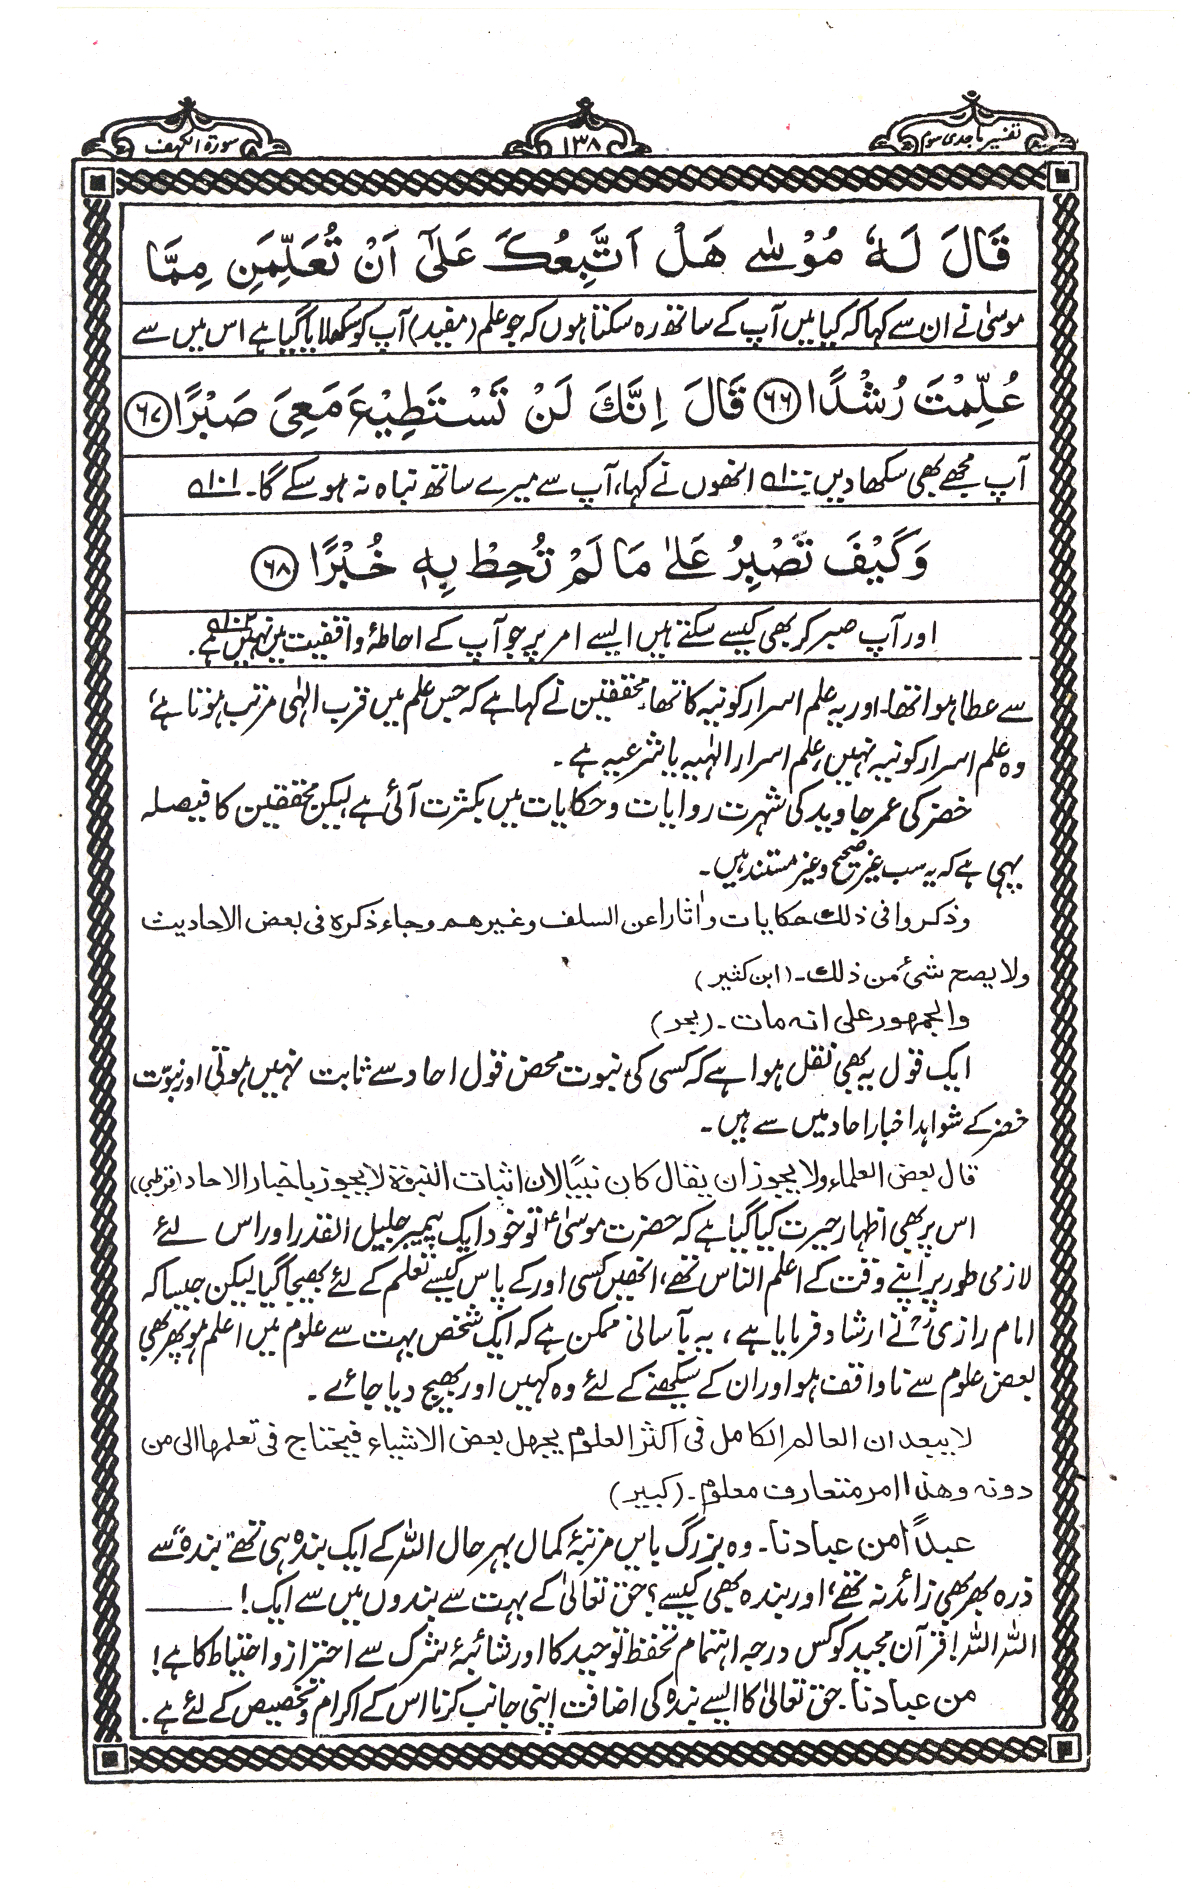 تفسیر ماجدی سوم
۱۳۸
سورۃ الکہف
قَالَ لَهٗ مُوْسٰى هَلْ اَتَّبِعُكَ عَلٰٓى اَنْ تُعَلِّمَنِ مِمَّا
موسیٰ نے ان سے کہا کہ کیا میں آپ کے ساتھ رہ سکتا ہوں کہ جو علم (مفید) آپ کو سکھلایا گیا ہے اس میں سے
عُلِّمْتَ رُشْدًا ﴿۶۶﴾ قَالَ اِنَّكَ لَنْ تَسْتَطِيْعَ مَعِىَ صَبْرًا ﴿۶۷﴾
آپ مجھے بھی سکھا دیں ۱۰۰؎ انھوں نے کہا، آپ سے میرے ساتھ نباہ نہ ہو سکے گا۔ ۱۰۱؎
وَكَيْفَ تَصْبِرُ عَلٰى مَا لَمْ تُحِطْ بِهٖ خُبْرًا ﴿۶۸﴾
اور آپ صبر کر بھی کیسے سکتے ہیں ایسے امر پر جو آپ کے احاطۂ واقفیت میں نہیں ہے۔ ۱۰۲؎
سے عطا ہوا تھا۔ اور یہ علم اسرار کونیہ کا تھا، محققین نے کہا ہے کہ جس علم میں قرب الٰہی مرتب ہوتا ہے،
وہ علم اسرار کونیہ نہیں، علم اسرار الٰہیہ یا شرعیہ ہے۔
خضر کی عمر جاوید کی شہرت روایات و حکایات میں بکثرت آئی ہے لیکن محققین کا فیصلہ
یہی ہے کہ یہ سب غیر صحیح و غیر مستند ہیں۔
وذکروا فی ذلك حکایات واٰثارا عن السلف وغیرهم وجاء ذکره فی بعض الاحادیث
ولا یصح شیٔ من ذلك۔ (ابن کثیر)
والجمهور علی انه مات۔ (بحر)
ایک قول یہ بھی نقل ہوا ہے کہ کسی کی نبوت محض قول احاد سے ثابت نہیں ہوتی اور نبوّت
خضر کے شواہد اخبار احاد میں سے ہیں۔
قال بعض العلماء ولا یجوز ان یقال کان نبیًّا لان اثبات النبوة لا یجوز باخبار الاحاد (قرطبی)
اس پر بھی اظہار حیرت کیا گیا ہے کہ حضرت موسیٰؑ تو خود ایک پیمبر جلیل القدر اور اس لئے
لازمی طور پر اپنے وقت کے اعلم الناس تھے، انھیں کسی اور کے پاس کیسے تعلم کے لئے بھیجا گیا۔ لیکن جیسا کہ
امام رازیؒ نے ارشاد فرمایا ہے، یہ بآسانی ممکن ہے کہ ایک شخص بہت سے علوم میں اعلم ہو پھر بھی
بعض علوم سے ناواقف ہو اور ان کے سیکھنے کے لئے وہ کہیں اور بھیج دیا جائے۔
لا یبعد ان العالم الکامل فی اکثر العلوم یجهل بعض الاشیاء فیحتاج فی تعلمها الی من
دونه وهذا امر متعارف معلوم۔ (کبیر)
عبدًا من عبادنا۔ وہ بزرگ بایں مرتبۂ کمال بہرحال اللہ کے ایک بندہ ہی تھے "بندہ" سے
ذرہ بھر بھی زائد نہ تھے، اور بندہ بھی کیسے؟ حق تعالیٰ کے بہت سے بندوں میں سے ایک! ———
اللہ اللہ! قرآن مجید کو کس درجہ اہتمام تحفظ توحید کا اور شائبۂ شرک سے احتراز و احتیاط کا ہے!
من عبادنا۔ حق تعالیٰ کا ایسے بندہ کی اضافت اپنی جانب کرنا اس کے اکرام و تخصیص کے لئے ہے۔